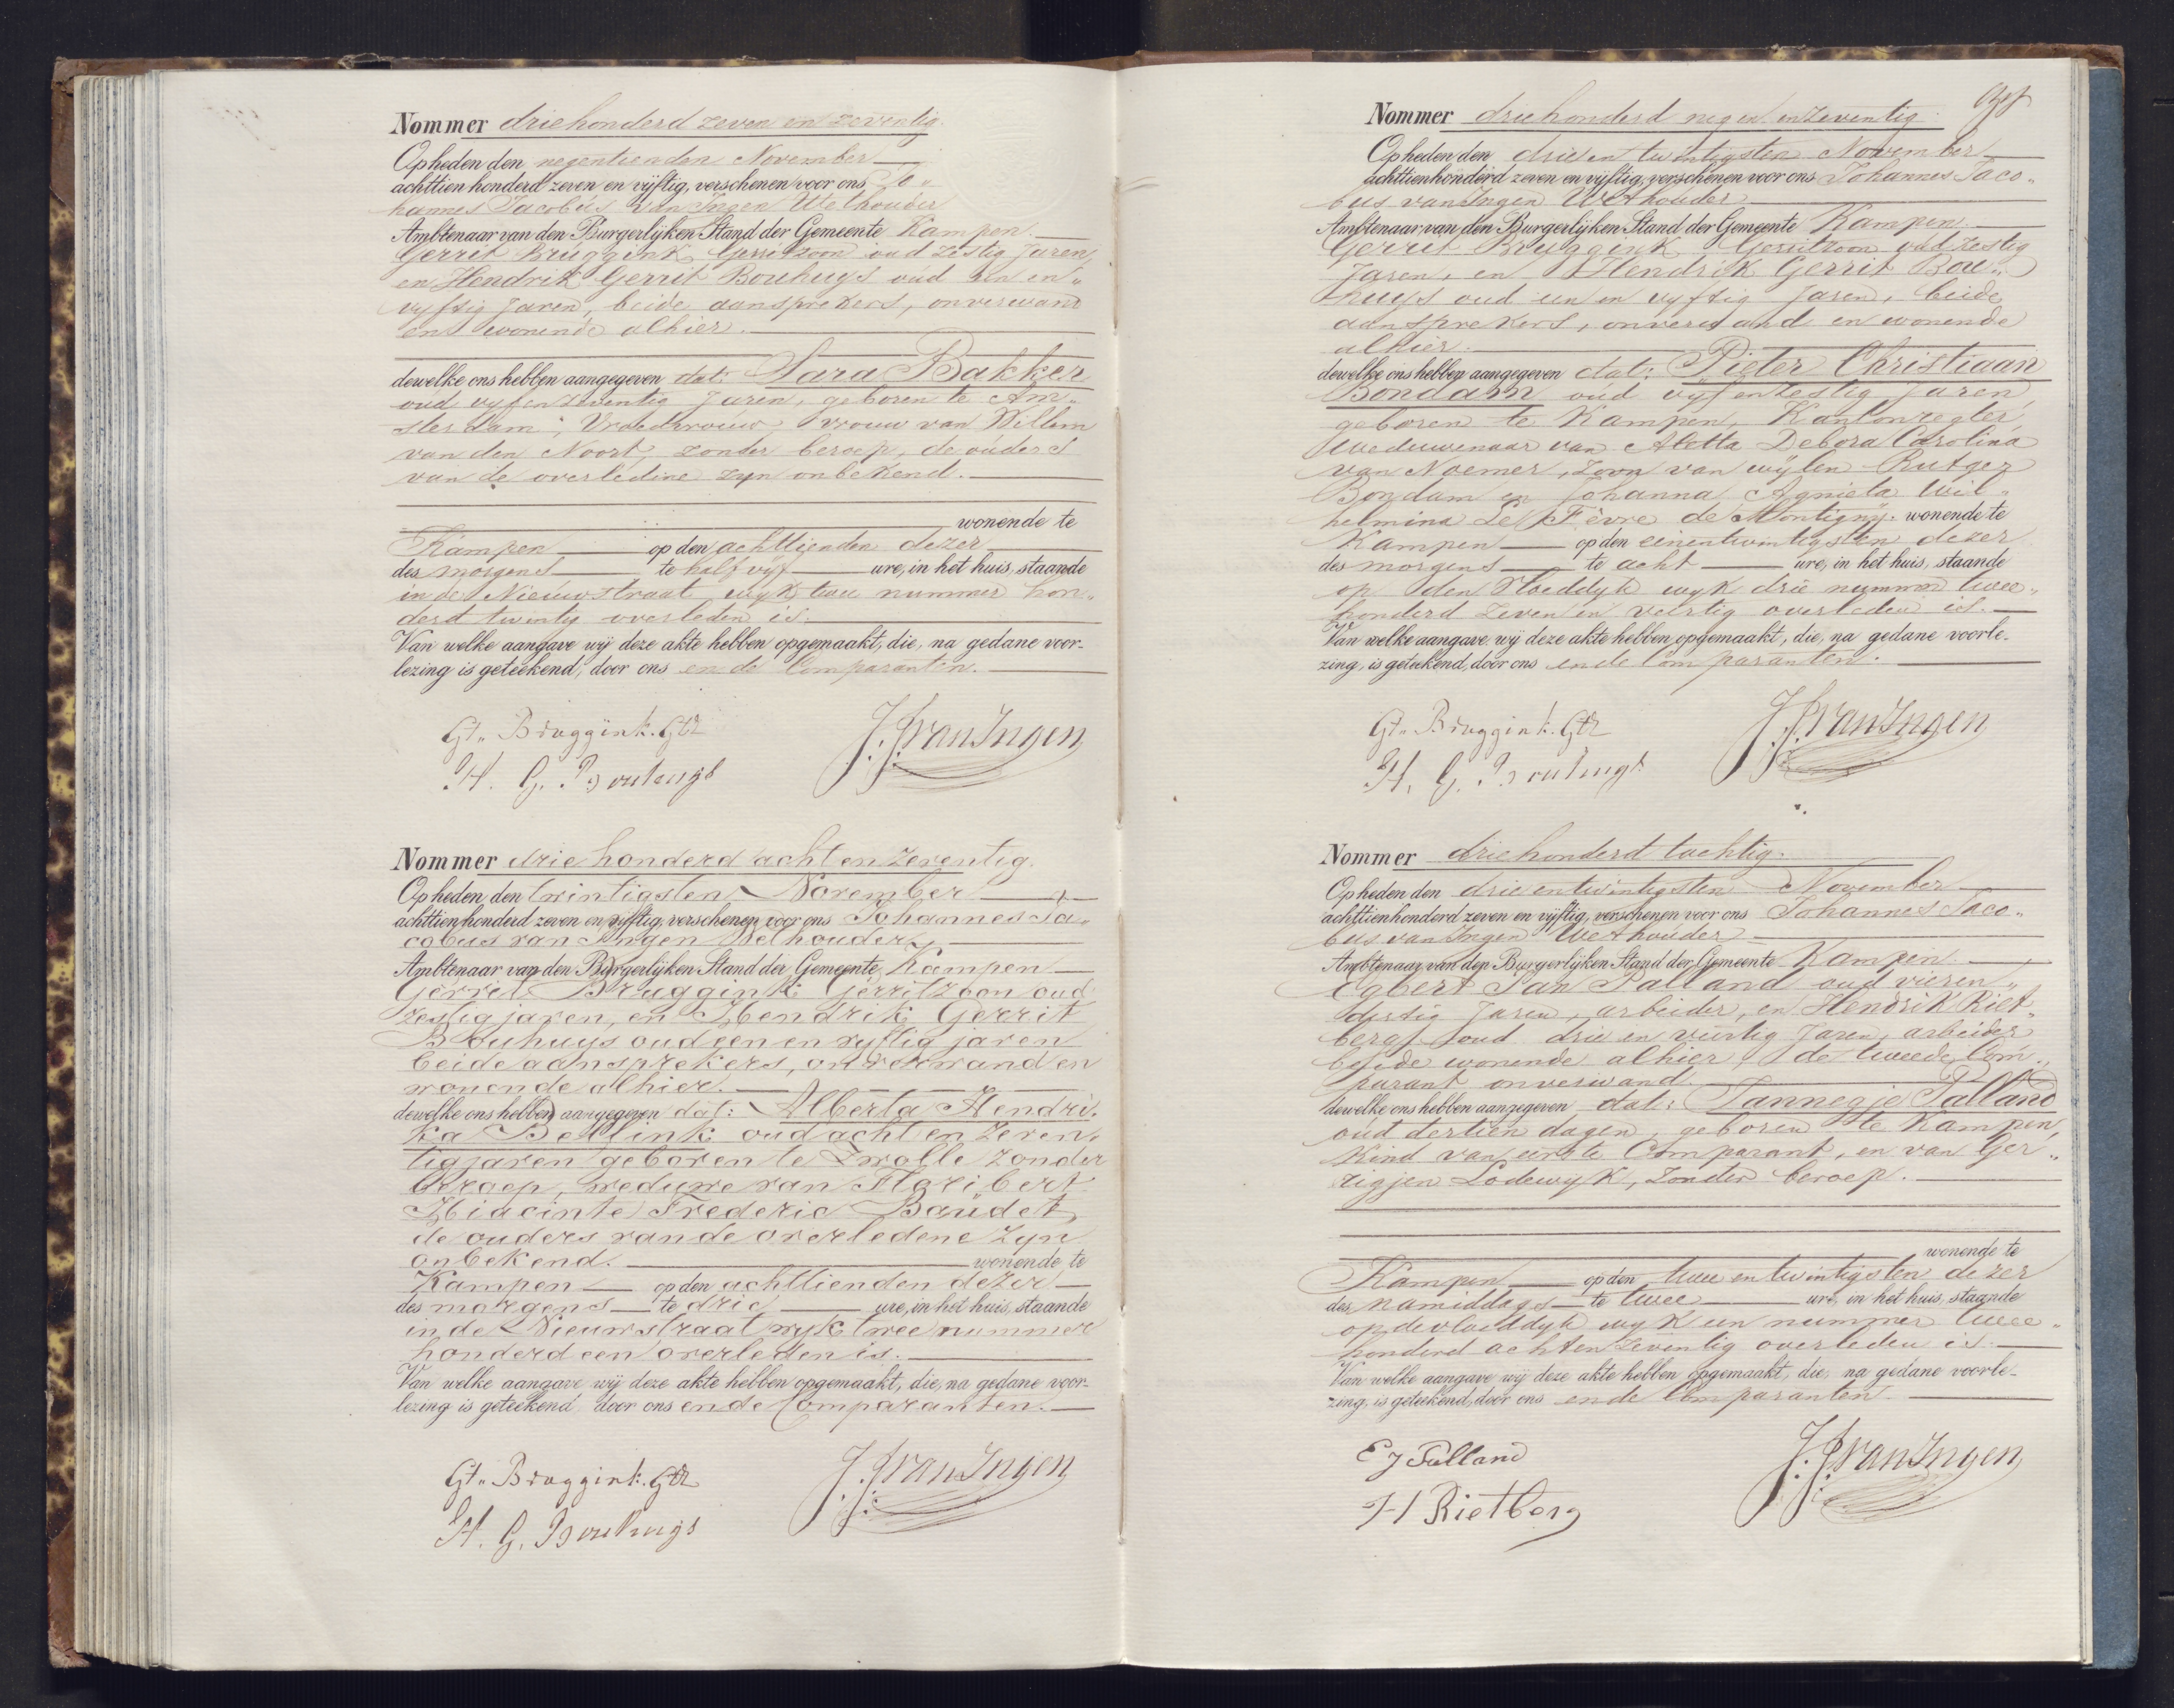 Nommer driehonderd zeven en zeventig.
Op heden den negentienden November
achttien honderd zeven en vijftig, verschenen voor ons Jo„
hannes Jacobus van Ingen Wethouder
Ambtenaar van den Burgerlijken Stand der Gemeente Kampen.
Gerrit Bruggink Gerritzoon oud zestig Jaren,
en Hendrik Gerrit Bouhuys oud een en„
vyftig Jaren, beide aansprekers, onverwand
en wonende alhier.
dewelke ons hebben aangegeven dat: Sara Bakker
oud vyf en zeventig Jaren, geboren te Am„
sterdam, Vroedvrouw, vrouw van Willem
van den Noort, zonder beroep, de ouders
van de overledene zyn onbekend.
wonende te
Kampen op den achttienden dezer
des morgens te half vyf ure, in het huis, staande
in de Nieuwstraat wyk twee nummer hon„
derd twintig overleden is.
Van welke aangave wij deze akte hebben opgemaakt, die, na gedane voor-
lezing is geteekend, door ons en de Comparanten.
Gt. Bruggink. Gtz
J. J. van Ingen
H. G. Bouhuys
Nommer drie honderd acht en zeventig.
Op heden den twintigsten November
achttien honderd zeven en vijftig, verschenen voor ons Johannes Ja„
cobus van Ingen Wethouder,
Ambtenaar van den Burgerlijken Stand der Gemeente Kampen
Gerrit Bruggink Gerritzoon oud
zestig jaren, en Hendrik Gerrit
Bouhuys oud een en vyftig jaren
beide aansprekers, onverwand en
wonende alhier.
dewelke ons hebben aangegeven dat: Alberta Hendri„
ka Bellink oud acht en zeven„
tig jaren geboren te Zwolle zonder
beroep, weduwe van Floribert
Hiacinte Frederic Baudet,
de ouders van de overledene zyn
onbekend. wonende te
Kampen op den achttienden dezer
des morgens te drie ure, in het huis, staande
in de Nieuwstraat wyk twee nummer
honderd een overleden is.
Van welke aangave wij deze akte hebben opgemaakt, die, na gedane voor-
lezing is geteekend door ons en de Comparanten.
Gt. Bruggink. Gtz
J. J. van Ingen
H. G. Bouhuys
Nommer driehonderd negen en zeventig.
Op heden den drie en twintigsten November
achttien honderd zeven en vijftig, verschenen voor ons Johannes Jaco„
bus van Ingen Wethouder
Ambtenaar van den Burgerlijken Stand der Gemeente Kampen
Gerrit Bruggink Gerritzoon oud zestig
Jaren, en Hendrik Gerrit Bou„
huys oud een en vyftig Jaren, beide
aansprekers, onverwand en wonende
alhier.
dewelke ons hebben aangegeven dat: Pieter Christiaan
Bondam oud vyf en zestig Jaren,
geboren te Kampen, Kantonregter,
Weduwenaar van Aletta Debora Carolina
van Noemer, zoon van wijlen Rutger
Bondam en Johanna Agnieta Wil„
helmina Le Fèvre de Montigny. wonende te
Kampen op den eenentwintigsten dezer
des morgens te acht ure, in het huis, staande
op den Vloeddyk wyk drie nummer twee„
honderd zeven en veertig overleden is.
Van welke aangave wij deze akte hebben opgemaakt, die, na gedane voorle-
zing, is geteekend, door ons en de Comparanten.
Gt. Bruggink. Gtz
J. J. van Ingen
H. G. Bouhuys
Nommer driehonderd tachtig.
Op heden den drie en twintigsten November
achttien honderd zeven en vijftig, verschenen voor ons Johannes Jaco„
bus van Ingen Wethouder
Ambtenaar van den Burgerlijken Stand der Gemeente Kampen
Egbert Jan Palland oud vier en„
dertig Jaren, arbeider, en Hendrik Riet„
berg oud drie en veertig Jaren, arbeider
beide wonende alhier, de tweede Com„
parant onverwand.
dewelke ons hebben aangegeven dat: Jannegje Palland
oud dertien dagen, geboren te Kampen,
kind van eerste Comparant, en van Ger„
rigjen Lodewyk, zonder beroep.
wonende te
Kampen op den twee en twintigsten dezer
des namiddags te twee ure, in het huis, staande
op de vloeddyk wyk een nummer twee„
honderd acht en zeventig overleden is.
Van welke aangave wij deze akte hebben opgemaakt, die, na gedane voorle-
zing, is geteekend, door ons en de Comparanten
E J Palland
J. J. van Ingen
H Rietberg